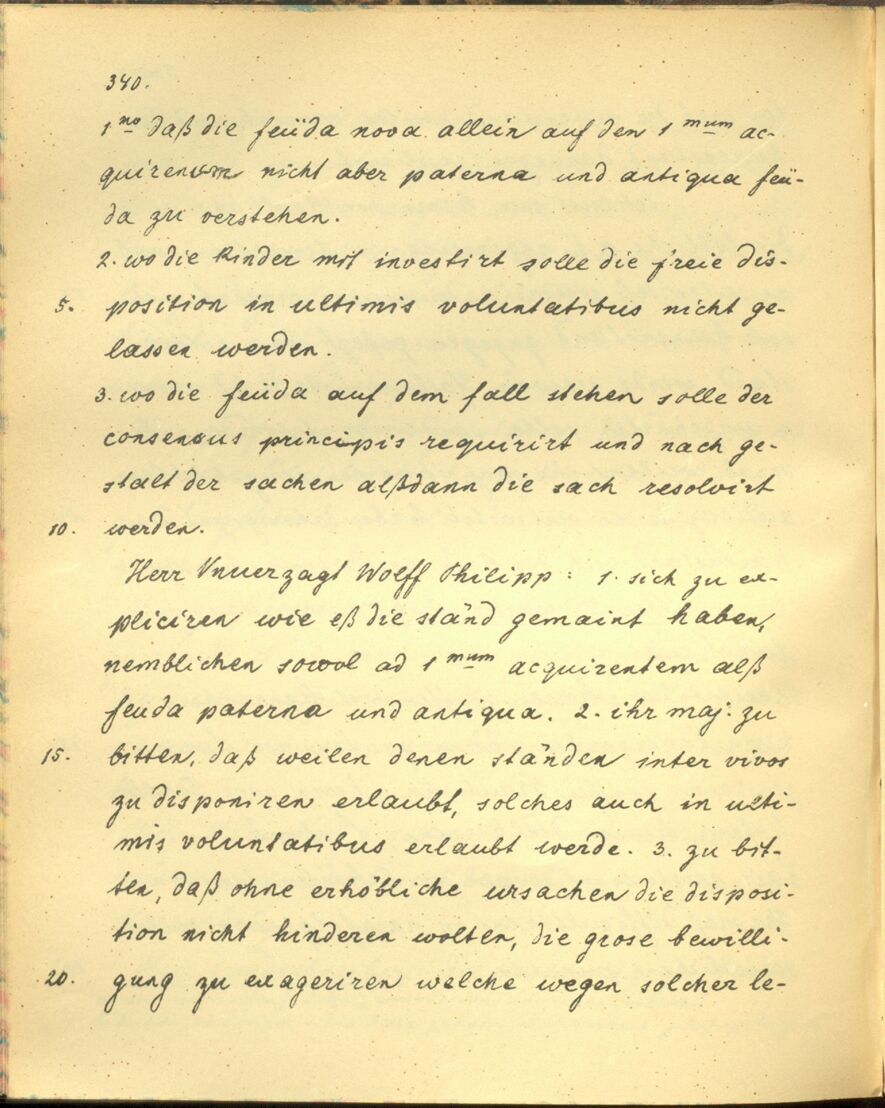 340.
1 no daß die feüda nova allein auf den 1 mum ac-
quirentem nicht aber paterna und antiqua feü-
da zu verstehen.
2. wo die Kinder mit investirt solle die freie dis-
5. position in ultimis voluntatibus nicht ge-
lassen werden.
3. wo die feüda auf dem fall stehen solle der
consensus principis requirirt und nach ge-
stalt der sachen alßdann die sach resolvirt
10. werden.
Herr Vnuerzagt Wolff Philipp: 1. sich zu ex-
pliciren wie eß die ständ gemaint haben,
nemblichen sowol ad 1 mum acquirentem alß
feuda paterna und antiqua. 2. ihr maj. zu
15. bitten, daß weilen denen ständen inter vivos
zu disponiren erlaubt, solches auch in ulti-
mis voluntatibus erlaubt werde. 3. zu bit-
ten, daß ohne erhöbliche ursachen die disposi-
tion nicht hinderen wolten, die grose bewilli-
20. gung zu exageriren welche wegen solcher le-